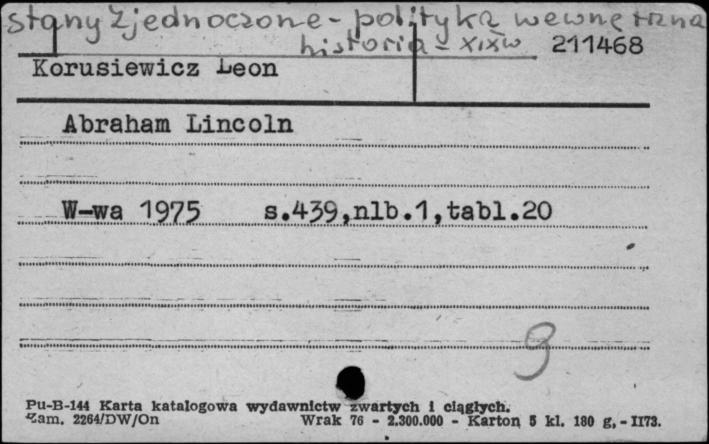 Stany Zjednoczone - polityka wewnętrzna
historia - XIXw 211468
Korusiewicz Leon
Abraham Lincoln
W-wa 1975 s.439,nlb.1,tabl.20
9
Pu-B-144 Karta katalogowa wydawnictw zwartych i ciągłych.
Zam. 2264/DW/On Wrak 76 - 2.300.000 - Karton 5 kl. 180 g. - II73.